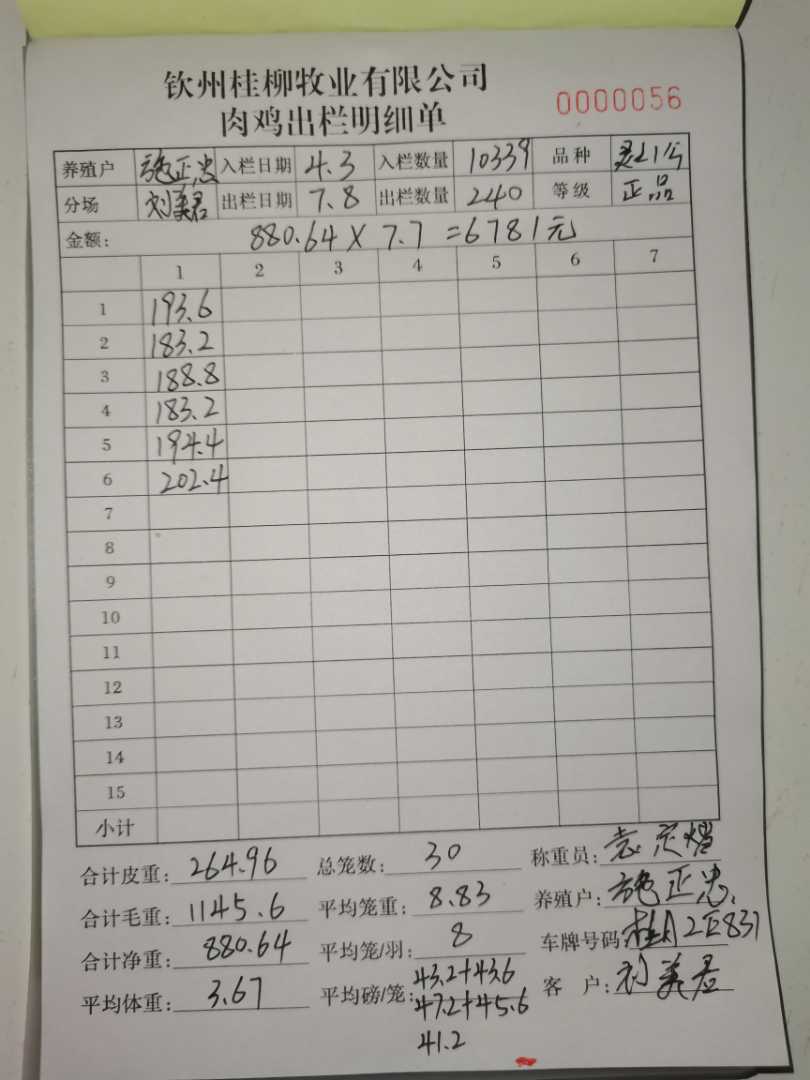 钦州桂柳牧业有限公司
肉鸡出栏明细单
0000056
养殖户 施正忠 入栏日期 4.3 入栏数量 10339 品种
分场 刘美君 出栏日期 7.8 出栏数量 240 等级 正品
金额: 880.64 X 7.7 =6781元
1 2 3 4 5 6 7
1 193.6
2 183.2
3 188.8
4 183.2
5 194.4
6 202.4
7
8
9
10
11
12
13
14
15
小计
合计皮重: 264.96 总笼数: 30 称重员:
合计毛重: 1145.6 平均笼重: 8.83 养殖户: 施正忠
合计净重: 880.64 平均笼/羽: 8 车牌号码:
平均体重: 3.67 平均磅/笼: 43.2+43.6 客 户: 刘美君
47.2+45.6
41.2